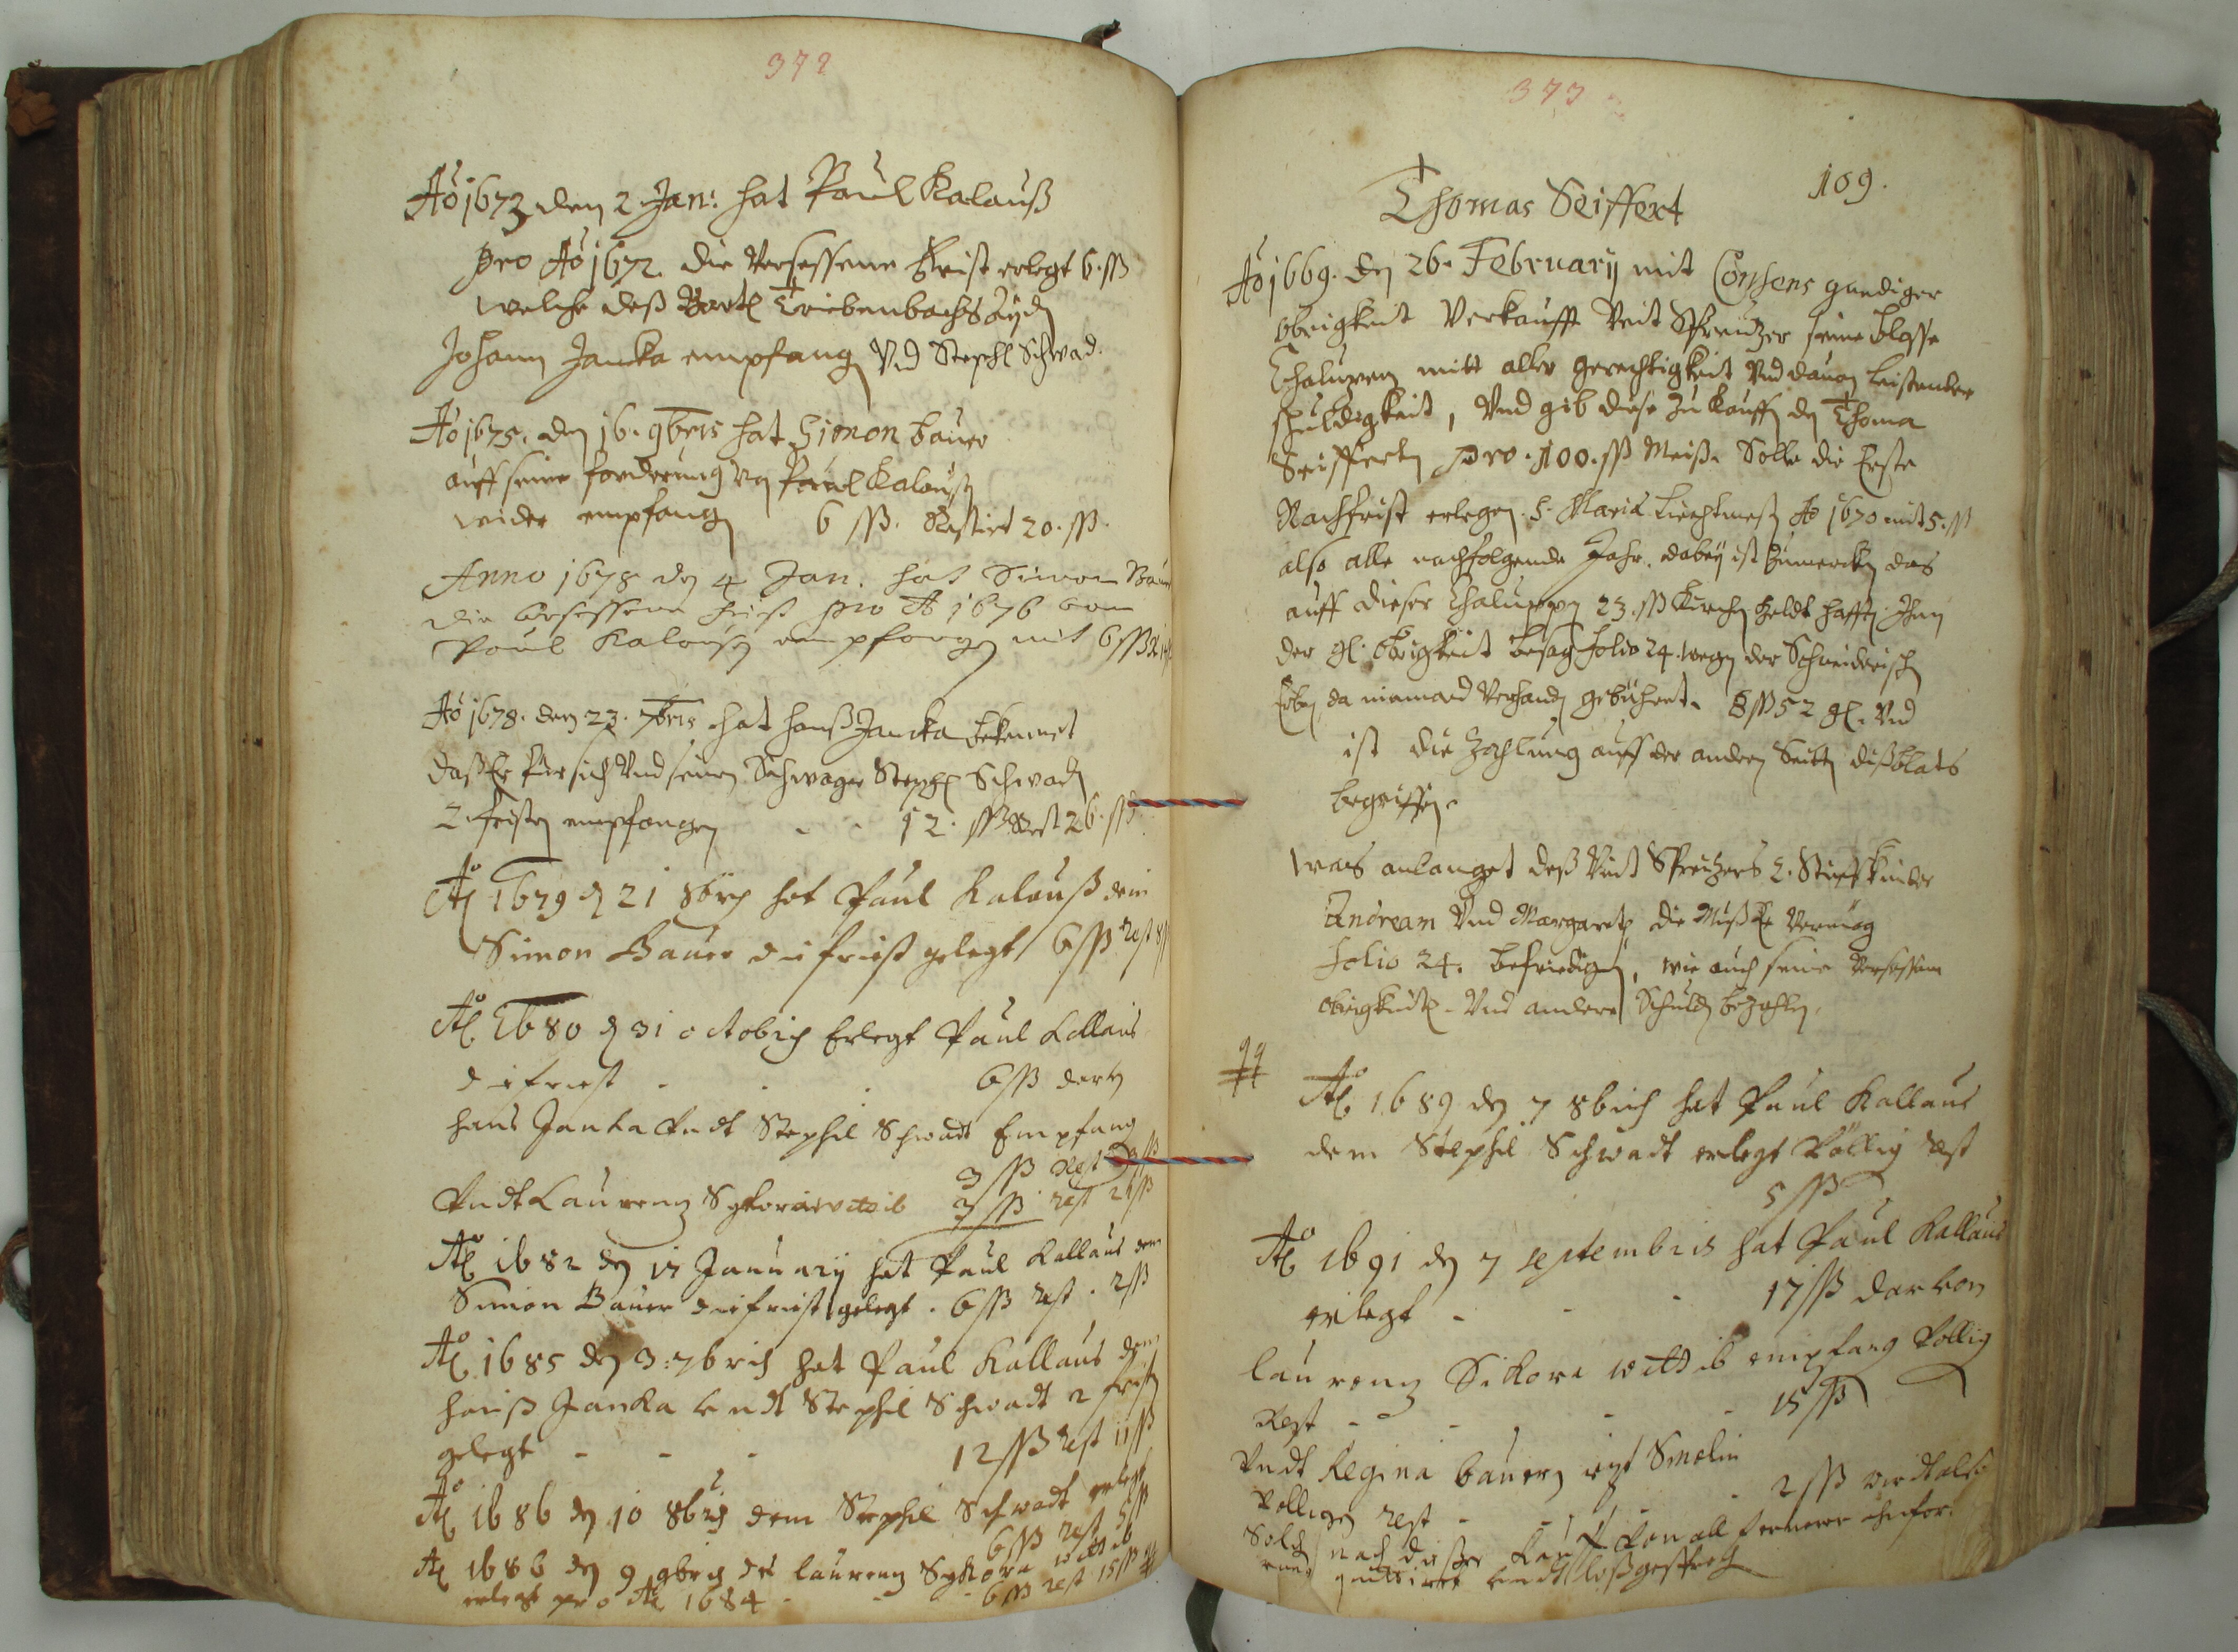 372
Aõ 1673 den 2 Jan: hat Paul Kalauß
pro Aõ 1672. die versessene Frist erlegt 6. ßß
welche deß Bartl Triebenbachs
Johann Janka empfang Vnd Stephl Schwad.
Aõ 1675. den 16. 9bris hat Simon Bauer
auff seine forderung von Paul Kalauß
wider empfang 6 ßß. Restirt 20. ßß.
Anno 1678 den 4 Jan. hat Simon Bauer
die versessene frist pro Ao 1676 vom
Paul Kalauß empfangen mit 6 ßß
Aõ 1678. den 23. 7bris hat Hanß Janka bekennet
daß Er für sich Vnd seinen Schwager Stephl Schwad
2. fristen empfangen - - 12. ßß Rest 26. ßß
Ao 1679 d 21 8bris hat Paul Kalauß dem
Simon Bauer die frist gelegt 6 ßß rest 8
Ao 1680 d 31 octobris Erlegt Paul Kallaus
die frist - - - 6 ßß
hans Janka Vndt Stephel Schwadt Empfang
3 ßß Rest
Vndt Laurenz Sykora wittib 3 ßß rest 21 ßß
Ao 1682 den 15 January hat Paul Kallaus dem
Simon Bauer die frist gelegt. 6 ßß rest. 2 ßß
Ao 1685 den 3: 7bris hat Paul Kallaus dem
hanß Janka vndt Stephel Schwadt 2 frist
gelegt - - - 12 ßß rest 11 ßß
Ao 1686 den 10 8bris dem Stephel Schwadt erlegt
6 ßß rest 5 ßß
Ao 1686 den 9 9bris der laurenz Sykora wittib
erlegt pro Ao 1684 - - - 6 ßß rest 15 ßß
373
109.
Thomas Seiffert
Aõ 1669. den 26. February mit Consens gnediger
obrigkeit Verkaufft Veit Spreitzer seine blosse
Chaluppen mitt aller gerechtigkeit Vnd dauon leistender
schuldigkeit, Vnd gib diese zu kauffen den Thoma
Seifferten pro. 100. ßß Meiß. Solle die Erste
Nachfrist erlegen. S. Maria Liechtmeß Aõ 1670 mit 5. ßß
also alle nachfolgende Jahr. dabey ist zumercken das
auff dieser Chaluppen 23. ßß Kirchen geldt hafften. Ihnen
der gl. obrigkeit besag Folio 24. wegen der Schneiderischen
Erben, da niemand Verhanden gebühret. 8 ßß 52 gl. Vnd
ist die Zahlung auff der andern Seitten dißblats
begriffen.
Was anlanget deß Veit Spreitzers 2. Stieffkinder
Andream Vnd Margareth die Muß Er Vermög
Folio 24. befriedigen, wie auch seine versessene
obrigkeitl. Vnd andere Schulden bezahlen.
Ao 1689 den 7 8bris hat Paul Kallaus
dem Stephel Schwadt erlegt Völlig rest
5 ßß
Ao 1691 den 7 septembris hat Paul Kallaus
erlegt - - - 17 ßß darvon
laurenz Sikora wittib empfang Vollig
Rest - - - 15 ßß
Vndt Regina bauern Smolin
Völligen rest - - - 2 ßß
Solch nach dießer Kauff Von all fernere
quittiret vndt loßgesproch